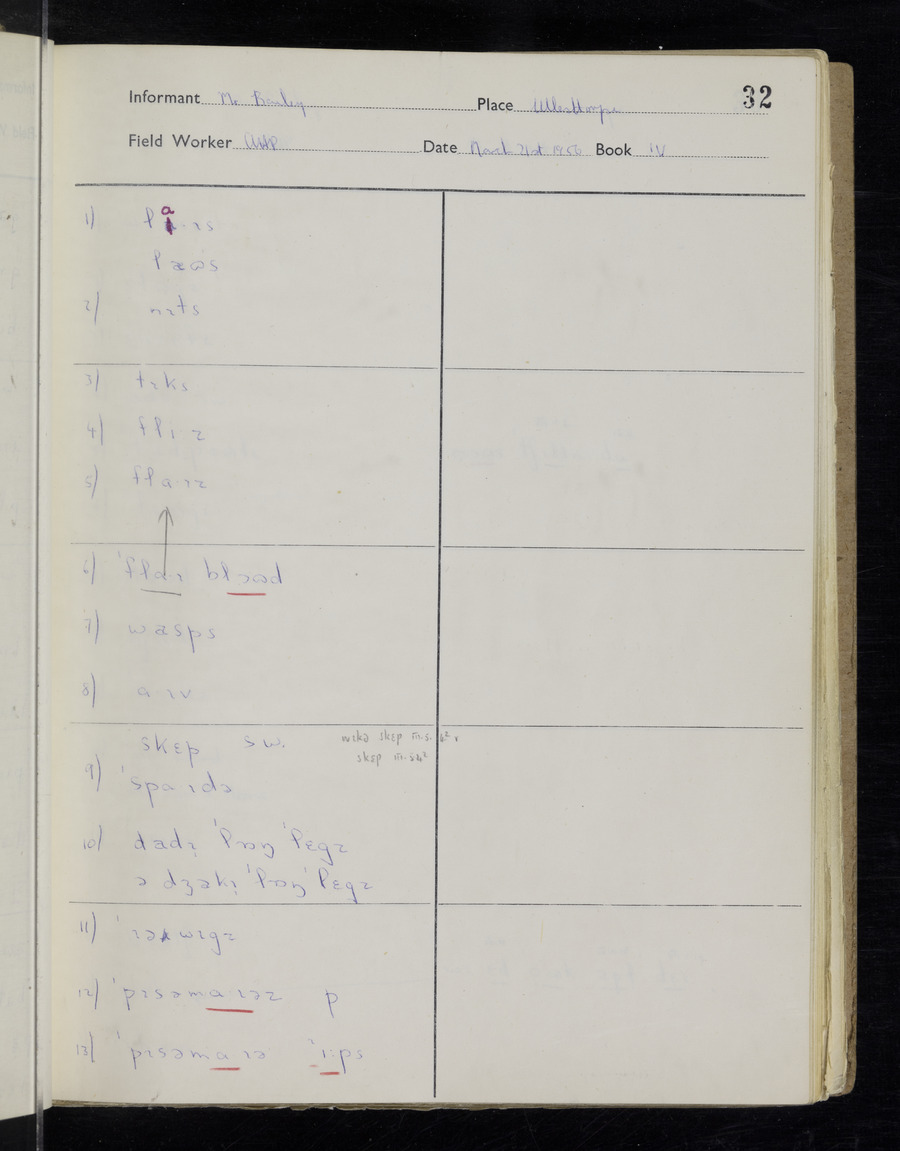 32
Informant Mr Bailey Place Ullesthorpe
Field Worker Date March 21st 1956 Book IV
1) laɪs
læʊs
2) nɪts
3) tɪks
4) fli z
5) flaɪz
6) ˈflaɪ blɔʊd
7) wasps
8) aɪv
skɛp s.w.
wɪkə skɛp
skɛp
9) ˈspaɪdə
10) dadɪ ˈlɒŋ ˈlɛgz
ə dʒakɪ ˈlɒŋ ˈlɛgz
11) wɪgz
12) ˈpɪsəmaɪəz p
13) ˈpɪsəmaɪə ˈiːps